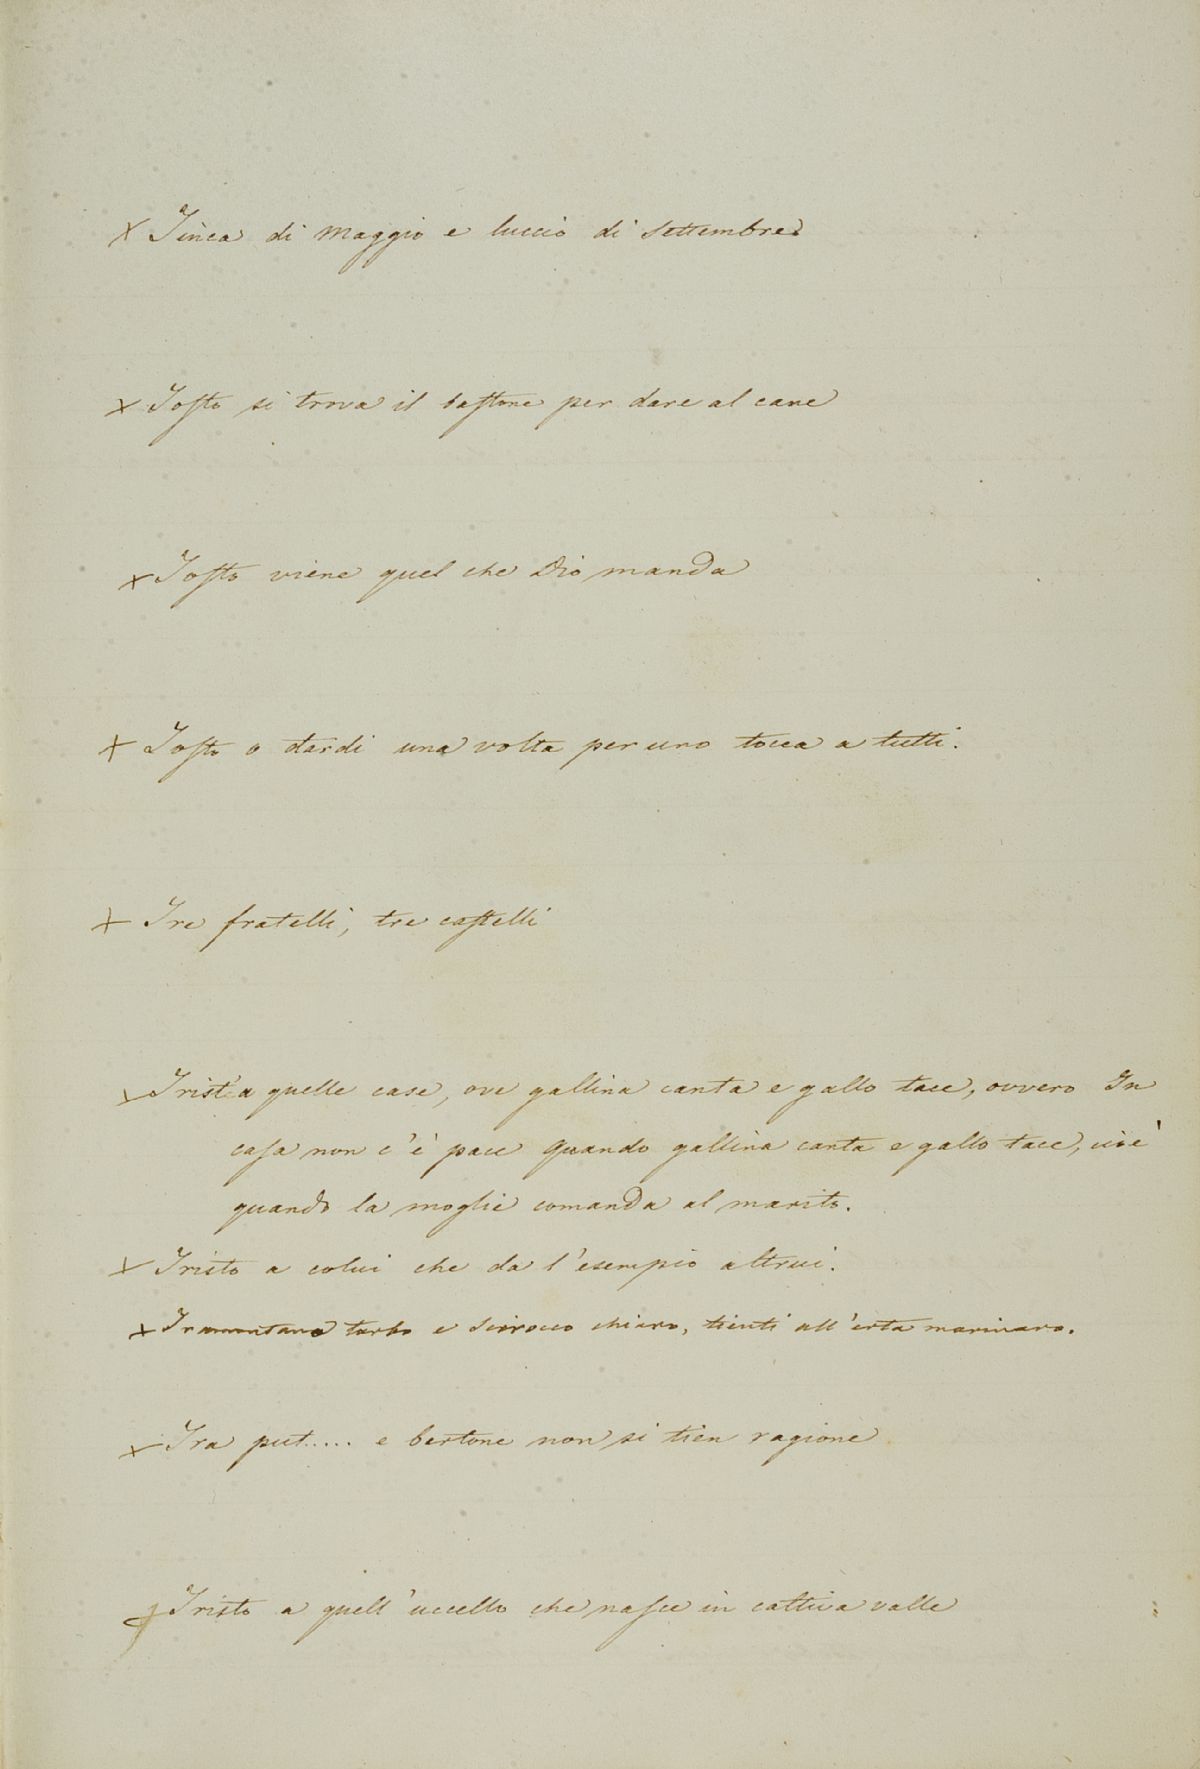 × Tinca di Maggio e luccio di Settembre
× Tosto si trova il bastone per dare al cane
× Tosto viene quel che Dio manda
× Tosto o tardi una volta per uno tocca a tutti.
× Tre fratelli, tre castelli
× Trist a quelle case, ove gallina canta e gallo tace, ovvero In
casa non c'è pace quando gallina canta e gallo tace, cioè
quando la moglie comanda al marito.
× Tristo a colui che da l'esempio altrui.
× Tramontana torbo e scirocco chiaro, tienti all'erta marinaro.
× Tra put..... e bertone non si tien ragione
Tristo a quell'uccello che nasce in cattiva valle